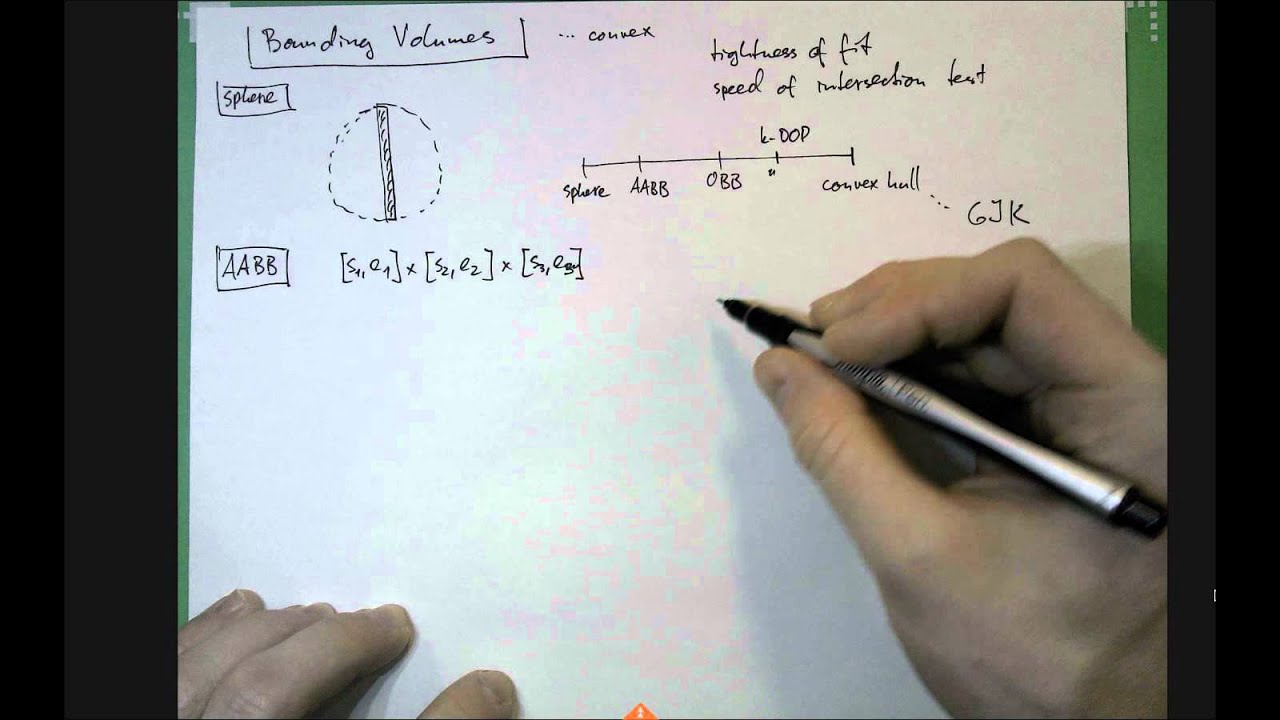 Bounding Volumes ... convex
tightness of fit
speed of intersection test
sphere
k-DOP
sphere AABB OBB " convex hull ... GJK
AABB [s1, e1] × [s2, e2] × [s3, e3]